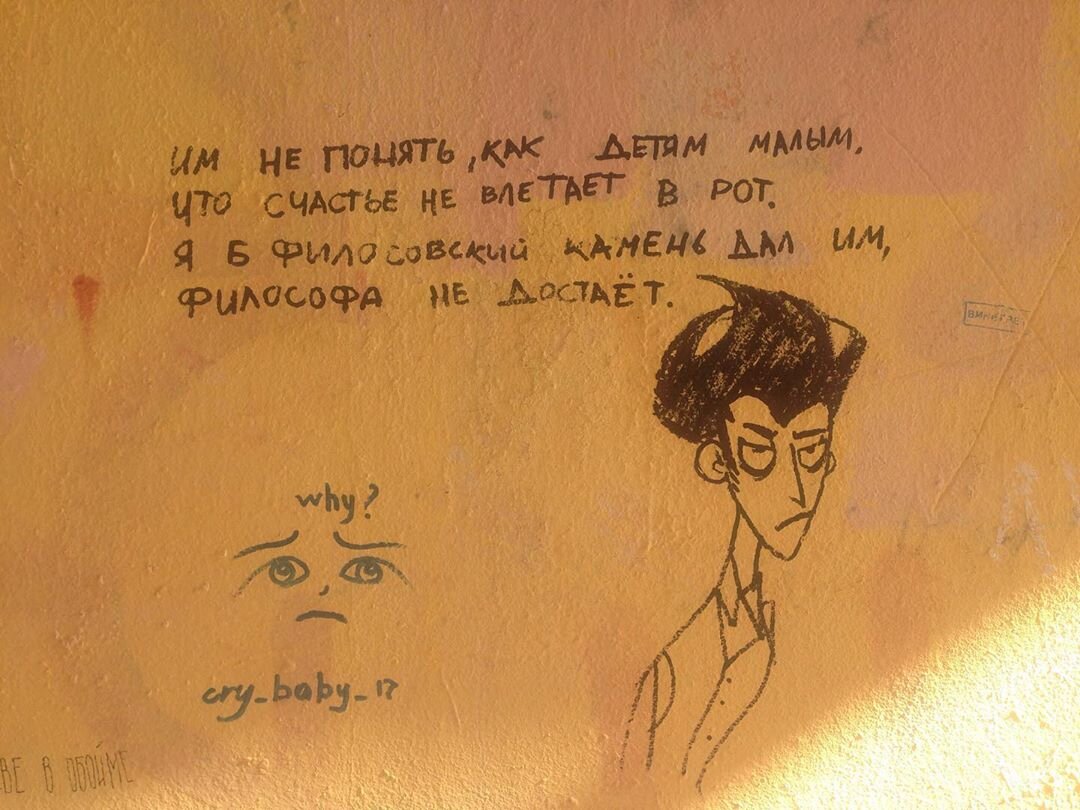 ИМ НЕ ПОНЯТЬ, КАК ДЕТЯМ МАЛЫМ,
ЧТО СЧАСТЬЕ НЕ ВЛЕТАЕТ В РОТ.
Я Б ФИЛОСОВСКИЙ КАМЕНЬ ДАЛ ИМ,
ФИЛОСОФА НЕ ДОСТАЁТ.
why?
cry_baby_17
В ОБОЙМЕ